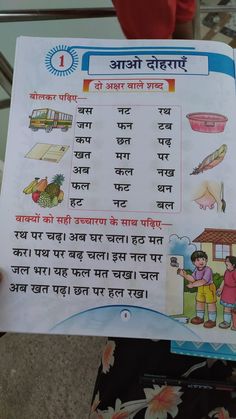 1 आओ दोहराएँ
दो अक्षर वाले शब्द
बोलकर पढ़िए—
बस नट रथ
जग फन टब
कप छत पढ़
खत मग पर
अब कल नख
फल फट थन
हट नट बल
वाक्यों को सही उच्चारण के साथ पढ़िए—
रथ पर चढ़। अब घर चल। हठ मत
कर। पथ पर बढ़ चल। इस नल पर
जल भर। यह फल मत चख। चल
अब खत पढ़। छत पर हल रख।
4